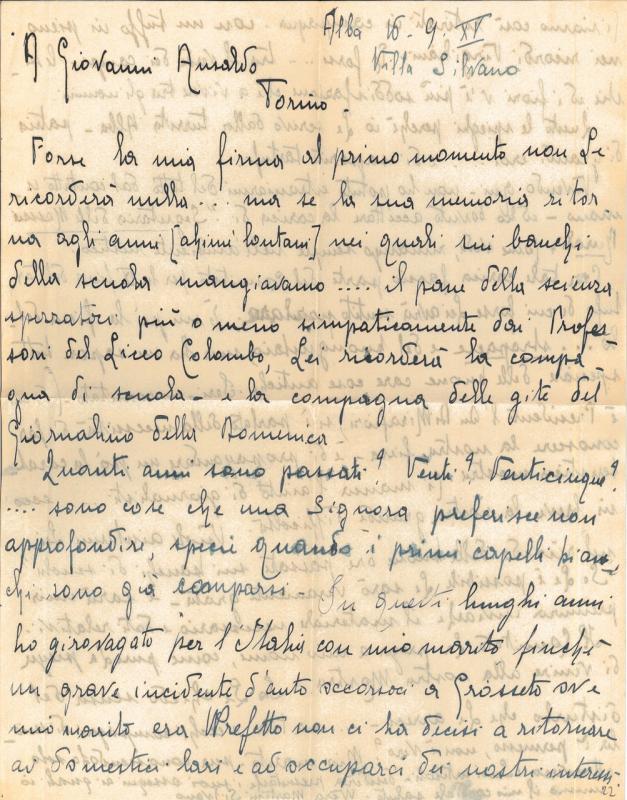 Alba 16-9-XV
Villa Silvano
A Giovanni Ansaldo
Torino -
Forse la mia firma al primo momento non Le
ricorderà nulla.... ma se la sua memoria ritor
na agli anni [ahimè lontani] nei quali sui banchi
della scuola mangiavamo .... il pane della scienza
spezzatoci più o meno simpaticamente dai Profes
sori del Liceo Colombo, Lei ricorderà la compa-
gna di scuola - e la compagna delle gite del
Giornalino della Domenica -
Quanti anni sono passati? Venti? Venticinque?
.... sono cose che una Signora preferisce non
approfondire, specie quando i primi capelli bian
chi sono già comparsi - In questi lunghi anni
ho girovagato per l'Italia con mio marito finchè
un grave incidente d'auto occorsoci a Grosseto ove
mio marito era Prefetto non ci ha decisi a ritornare
ai domestici lari e ad occuparci dei nostri interessi.
22